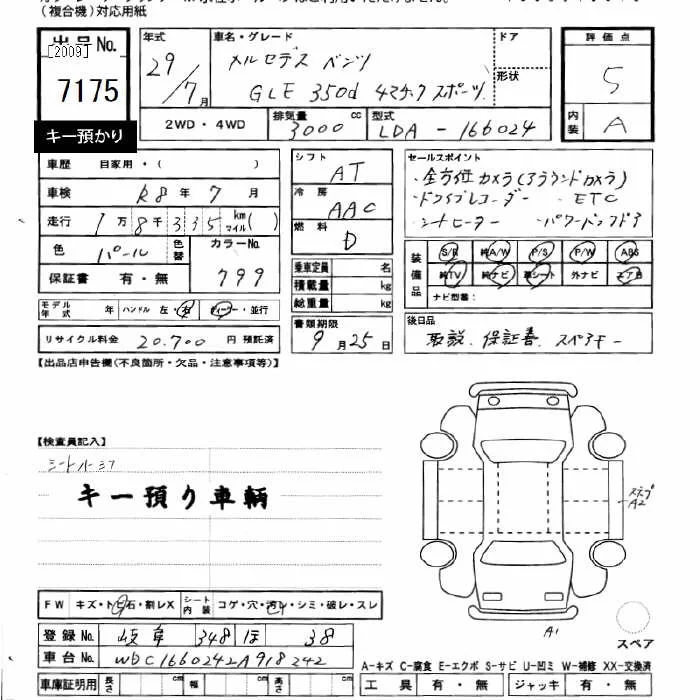 (複合機)対応用紙
出品No.
[2009]
7175
キー預かり
年式
29/7月
車名・グレード
メルセデス ベンツ
GLE 350d 4マチック スポーツ
ドア
形状
評価点
5
内装
A
2WD・4WD
排気量
3000 cc
型式
LDA-166024
車歴 自家用・( )
車検 R8年7月
走行 1万8千335 km マイル( )
色 パール
色替
カラーNo.
799
保証書 有・無
モデル年式 年 ハンドル 左・右 ディーラー・並行
リサイクル料金 20,700 円 預託済
シフト
AT
冷房
AAC
燃料
D
乗車定員 名
積載量 kg
総重量 kg
書類期限
9月25日
セールスポイント
・全方位カメラ(アラウンドカメラ)
・ドライブレコーダー ・ETC
・シートヒーター ・パワーバックドア
装備品
S/R 純A/W P/S P/W ABS
純TV 純ナビ 革シート 外ナビ エアB
ナビ型番:
後日品
取説、保証書、スペアキー
【出品店申告欄(不良箇所・欠品・注意事項等)】
【検査員記入】
キー預り車輌
ステップ
A2
A1
スペア
FW キズ・トビ石・割レX シート内装 コゲ・穴・汚レ・シミ・破レ・スレ
登録No. 岐阜 348 ほ 38
車台No. WDC1660242A918242
車庫証明用 長さ cm 幅 cm 高さ cm
A-キズ C-腐食 E-エクボ S-サビ U-凹ミ W-補修 XX-交換済
工具 有・無 ジャッキ 有・無